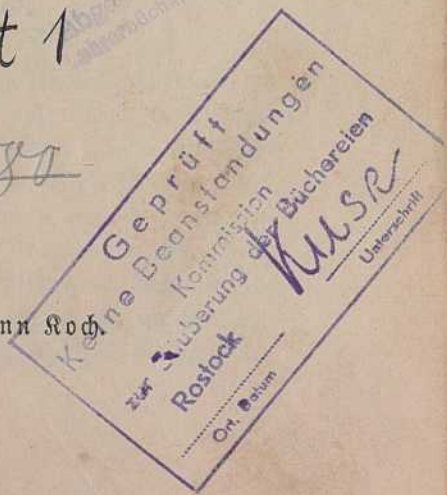 t 1
Geprüft
Keine Beanstandungen
Kommission
zur Säuberung der Büchereien
Rostock
Ort, Datum
Unterschrift
nn Koch.